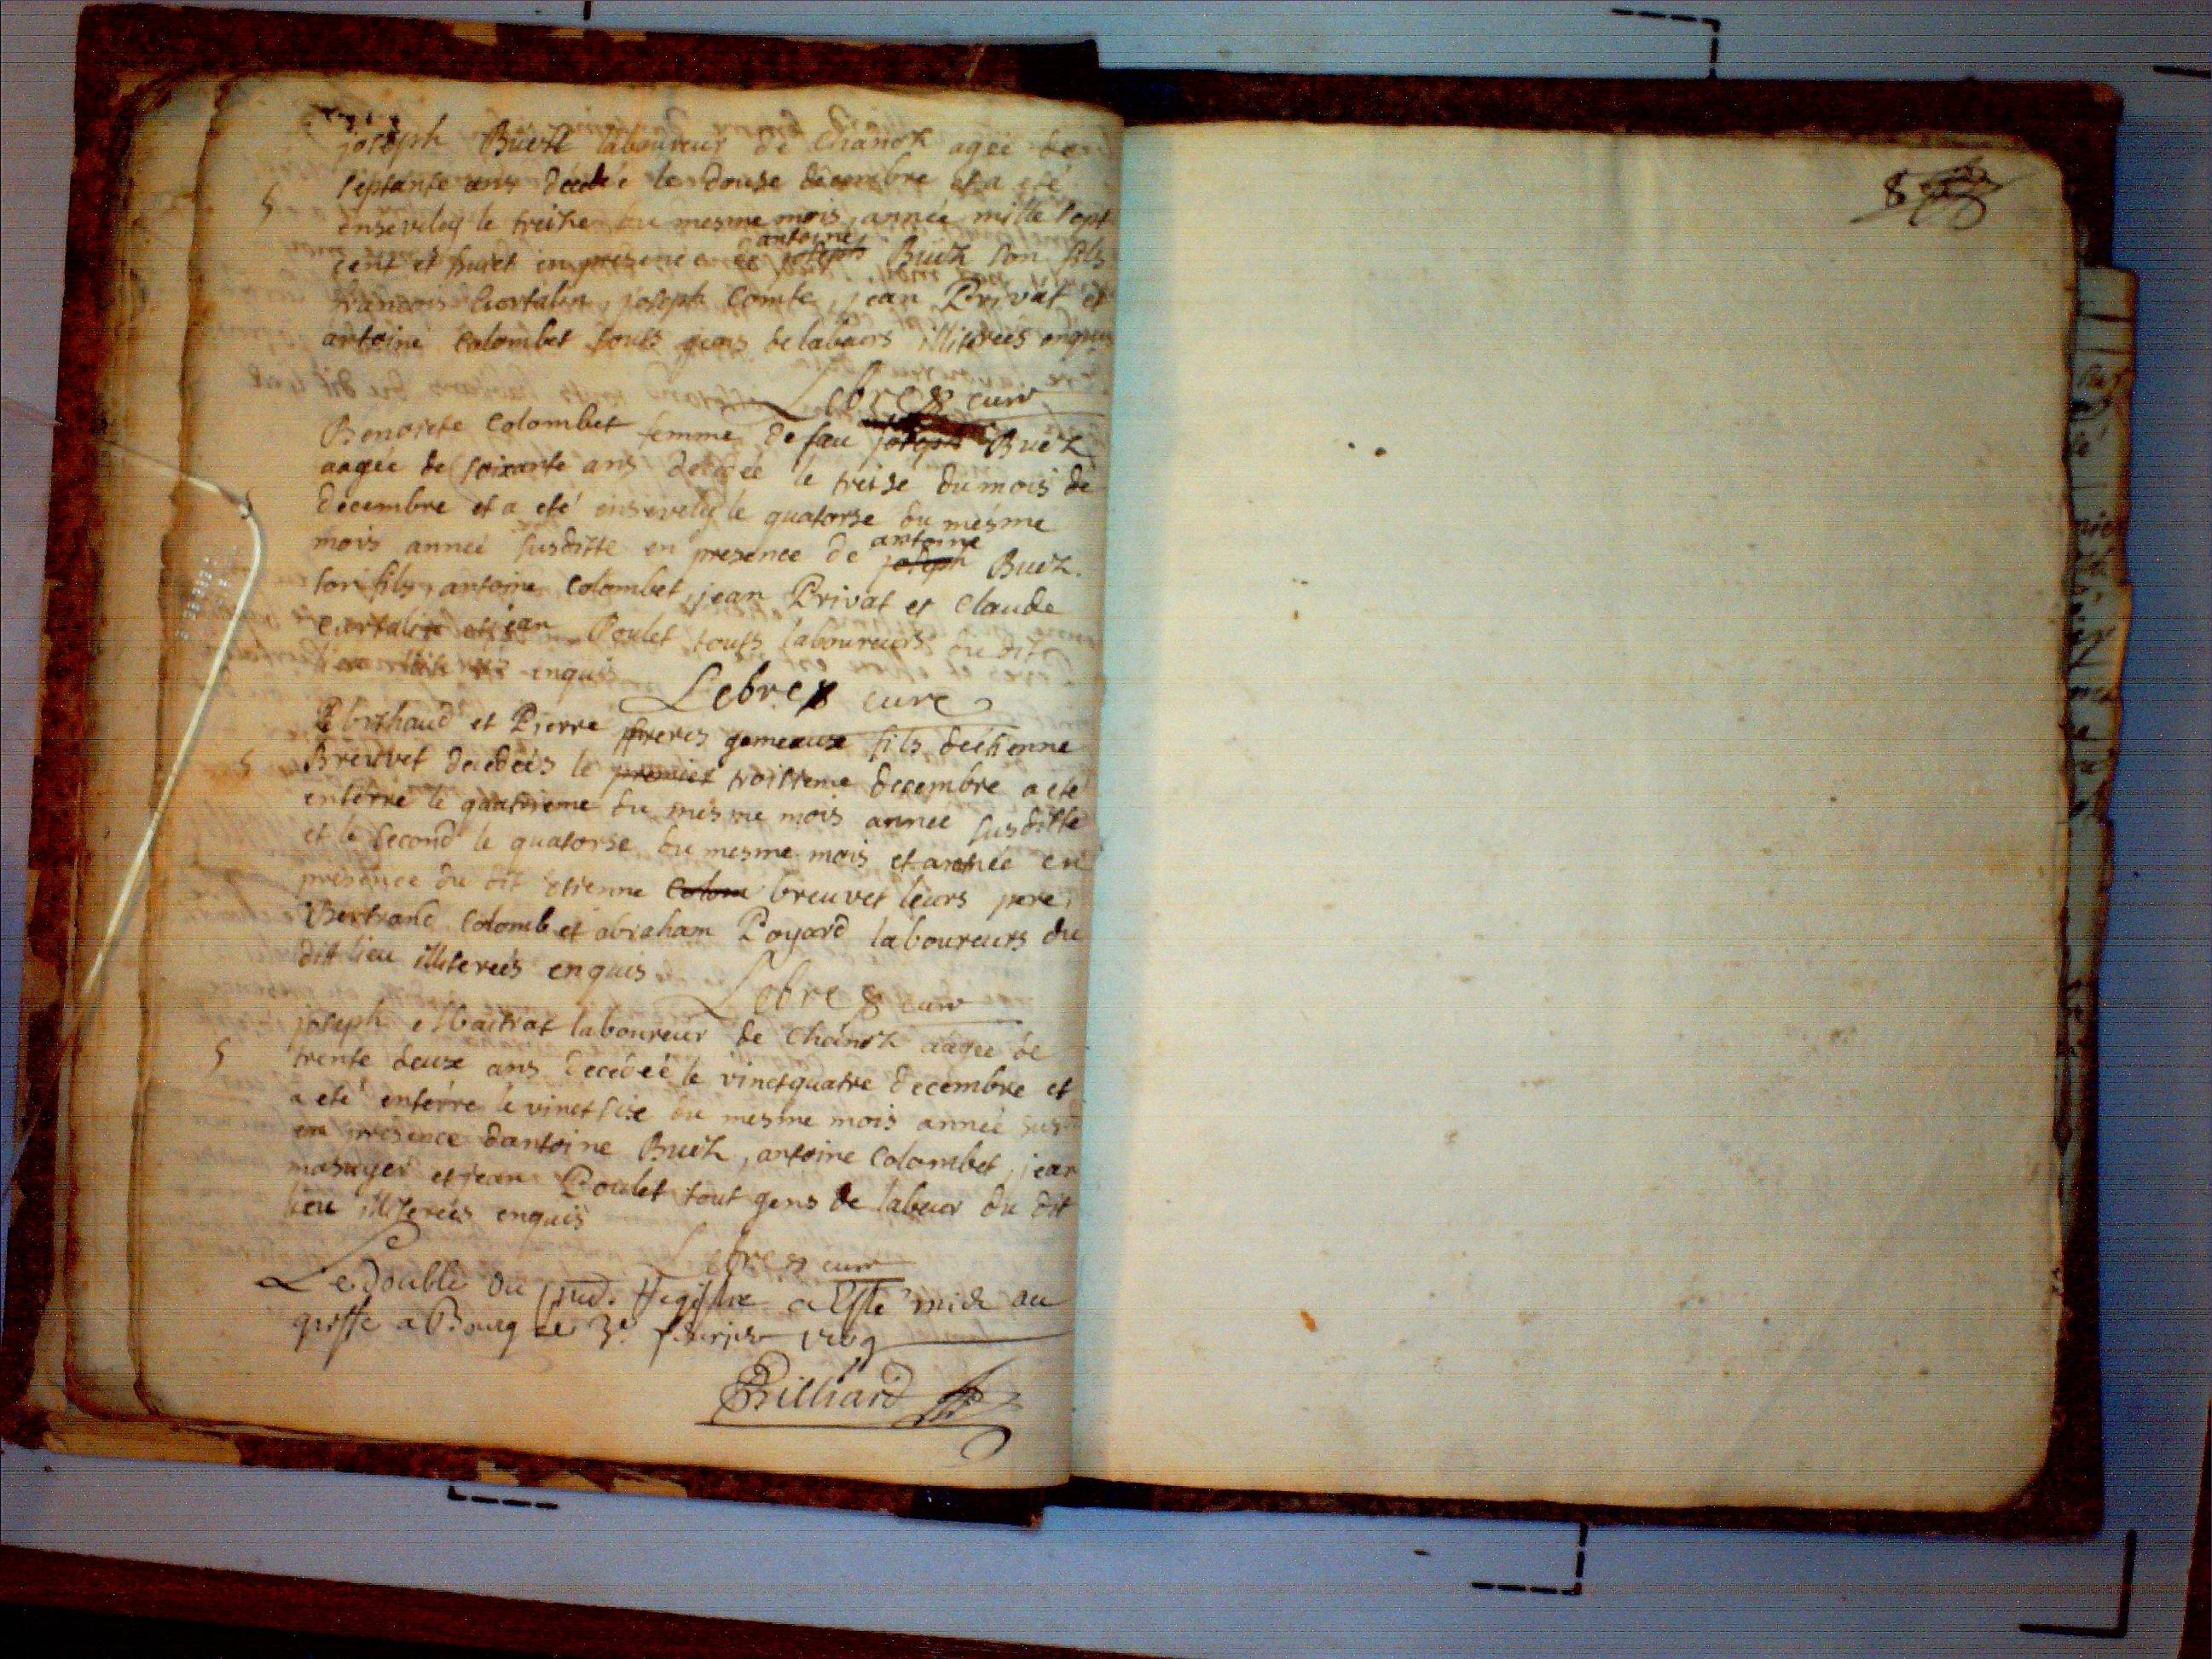 joseph Buez laboureur de Chanoz agée de
septante ans décédé le douse decembre et a eté
ensevely le treize du mesme mois, année mille sept
cent et huict en presence de joseph antoine Buez son fils
francois Curtalin, joseph Comte, jean Privat et
antoine Colombet touts gens de labeurs illiterés enquis
Lebre curé
Benoiste Colombet femme de feu joseph Buez
aagée de soixante ans decedée le treise du mois de
decembre et a eté ensevely le quatorse du mesme
mois année susditte en presence de joseph antoine Buez
son fils, antoine Colombet, jean Privat et Claude
Curtalin et jean Poulet touts laboureurs du dit
lieu enquis
Lebre curé
et Pierre freres gemeaux fils de étienne
Breuvet decedés le premier troisieme decembre a eté
enterré le quatrieme du mesme mois année susditte
et le second le quatorse du mesme mois et année en
presence du dit étienne Colom breuvet leurs pere,
Bertrand Colomb et abraham Poyard laboureurs du
dit lieu illiterés enquis
Lebre curé
joseph laboureur de Chanoz aagée de
trente deux ans decedéé le vinct quatre decembre et
a eté enterré le vinct sise du mesme mois année sus
en presence dantoine Buez, antoine Colombet, jean
masuyer et jean Poulet tout gens de labeur du dit
lieu illiterés enquis
Lebre curé
Le double du Registre a Esté mis au
greffe a Bourg le 3e 1709
Billiard
8